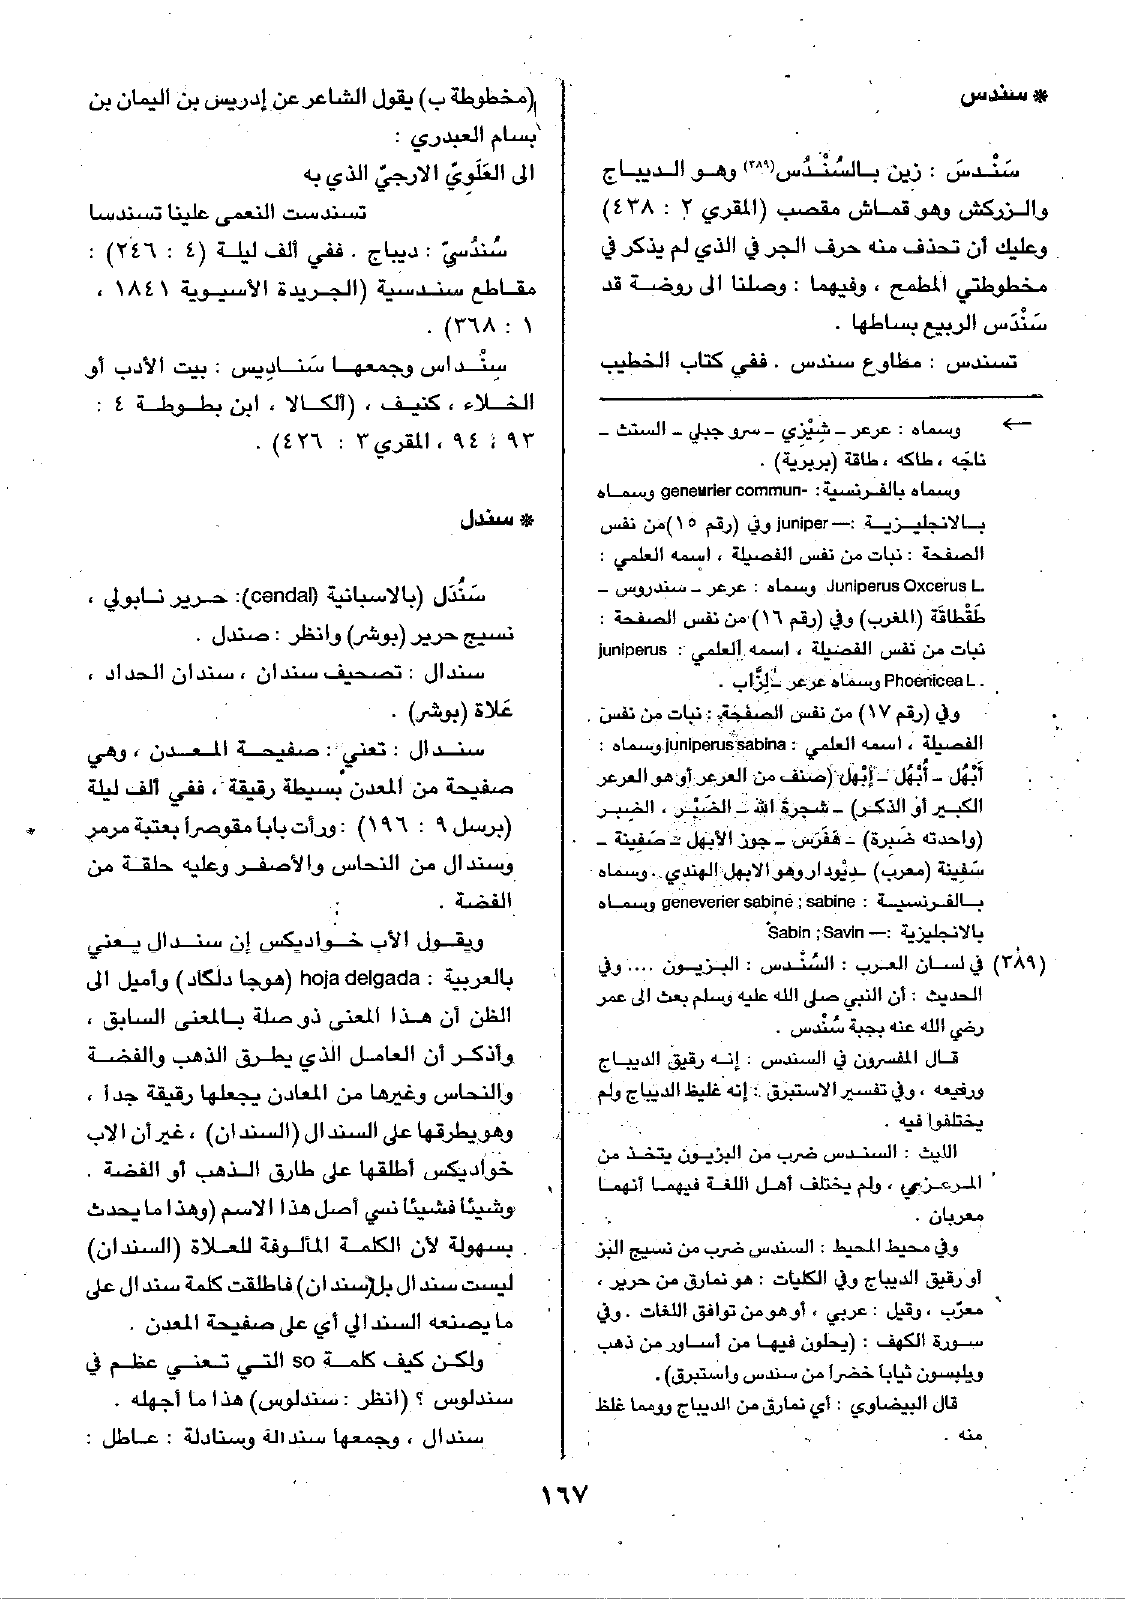 * سندس
سَنْدسَ : زين بالسُنْدُس(٣٨٩) وهو الديباج
والزركش وهو قماش مقصب (المقري ٢ : ٤٣٨)
وعليك أن تحذف منه حرف الجر في الذي لم يذكر في
مخطوطتي المطمح ، وفيهما : وصلنا الى روضة قد
سَنْدَس الربيع بساطها .
تسندس : مطاوع سندس . ففي كتاب الخطيب
← وسماه : عرعر – شِيْزي – سرو جبلي – الستث –
ناجه ، طاكه ، طاقة (بربرية) .
وسماه بالفرنسية: geneurier commun- وسماه
بالانجليزية :— juniper وفي (رقم ١٥)من نفس
الصفحة : نبات من نفس الفصيلة ، اسمه العلمي :
Juniperus Oxcerus L. وسماه : عرعر – سندروس –
طَقْطاقَة (المغرب) وفي (رقم ١٦) من نفس الصفحة :
نبات من نفس الفصيلة ، اسمه العلمي : juniperus
Phoenicea L. وسماه عرعر – لِزَّاب .
وفي (رقم ١٧) من نفس الصفحة : نبات من نفس
الفصيلة ، اسمه العلمي : juniperus sabina وسماه :
أَبْهُل – أُبْهُل – إِبْهِل (صنف من العرعر أو هو العرعر
الكبير أو الذكر) – شجرة الله – الضَبْر ، الضبر
(واحدته ضَبِرة) – هَفَرَس – جوز الأبهل – صَفِينة –
سَفِينة (معرب) – دِيُودار وهو الابهل الهندي . وسماه
بالفرنسية : geneverier sabine ; sabine وسماه
بالانجليزية :— Sabin ; Savin
(٣٨٩) في لسان العرب : السُنْدس : البزيون .... وفي
الحديث : أن النبي صلى الله عليه وسلم بعث الى عمر
رضي الله عنه بجبة سُنْدس .
قال المفسرون في السندس : إنه رقيق الديباج
ورفيعه ، وفي تفسير الاستبرق : إنه غليظ الديباج ولم
يختلفوا فيه .
الليث : السندس ضرب من البزيون يتخذ من
المرعزي ، ولم يختلف أهل اللغة فيهما أنهما
معربان .
وفي محيط المحيط : السندس ضرب من نسيج البز
أو رقيق الديباج وفي الكليات : هو نمارق من حرير ،
معرّب ، وقيل : عربي ، أو هو من توافق اللغات . وفي
سورة الكهف : (يحلون فيها من أساور من ذهب
ويلبسون ثياباً خضراً من سندس واستبرق).
قال البيضاوي : أي نمارق من الديباج وومما غلظ
منه .
(مخطوطة ب) يقول الشاعر عن إدريس بن اليمان بن
بسام العبدري :
الى العَلَويّ الارجيّ الذي به
تسندست النعمى علينا تسندسا
سُندُسيّ : ديباج . ففي ألف ليلة (٤ : ٢٤٦) :
مقاطع سندسية (الجريدة الأسيوية ١٨٤١ ،
١ : ٣٦٨) .
سِنْداس وجمعها سَناديس : بيت الأدب أو
الخلاء ، كنيف ، (ألكالا ، ابن بطوطة ٤ :
٩٣ ، ٩٤ ، المقري ٣ : ٤٢٦) .
* سندل
سَنْدَل (بالاسبانية (cendal): حرير نابولي ،
نسيج حرير (بوشر) وانظر : صندل .
سندال : تصحيف سندان ، سندان الحداد ،
عَلاة (بوشر) .
سندال : تعني : صفيحة المعدن ، وهي
صفيحة من المعدن بسيطة رقيقة ، ففي ألف ليلة
(برسل ٩ : ١٩٦) : ورأت بابا مقوصراً بعتبة مرمر
وسندال من النحاس والأصفر وعليه حلقة من
الفضة .
ويقول الأب خواديكس إن سندال يعني
بالعربية : hoja delgada (هوجا دلكاد) وأميل الى
الظن أن هذا المعنى ذو صلة بالمعنى السابق ،
وأذكر أن العامل الذي يطرق الذهب والفضة
والنحاس وغيرها من المعادن يجعلها رقيقة جداً ،
وهو يطرقها على السندال (السندان) ، غير أن الاب
خواديكس أطلقها على طارق الذهب أو الفضة .
وشيئا فشيئا نسي أصل هذا الاسم (وهذا ما يحدث
بسهولة لأن الكلمة المألوفة للعلاة (السندان)
ليست سندال بل(سندان) فاطلقت كلمة سندال على
ما يصنعه السندالي أي على صفيحة المعدن .
ولكن كيف كلمة so التي تعني عظم في
سندلوس ؟ (انظر : سندلوس) هذا ما أجهله .
سندال ، وجمعها سندالة وسنادلة : عاطل :
١٦٧